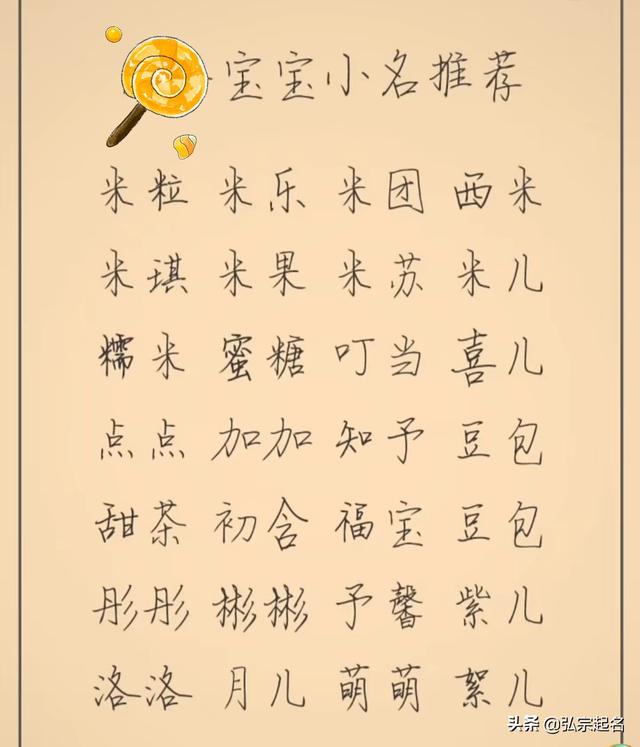 宝宝小名推荐
米粒 米乐 米团 西米
米琪 米果 米苏 米儿
糯米 蜜糖 叮当 喜儿
点点 加加 知予 豆包
甜茶 初含 福宝 豆包
彤彤 彬彬 予馨 紫儿
洛洛 月儿 萌萌 絮儿
头条 @弘宗起名